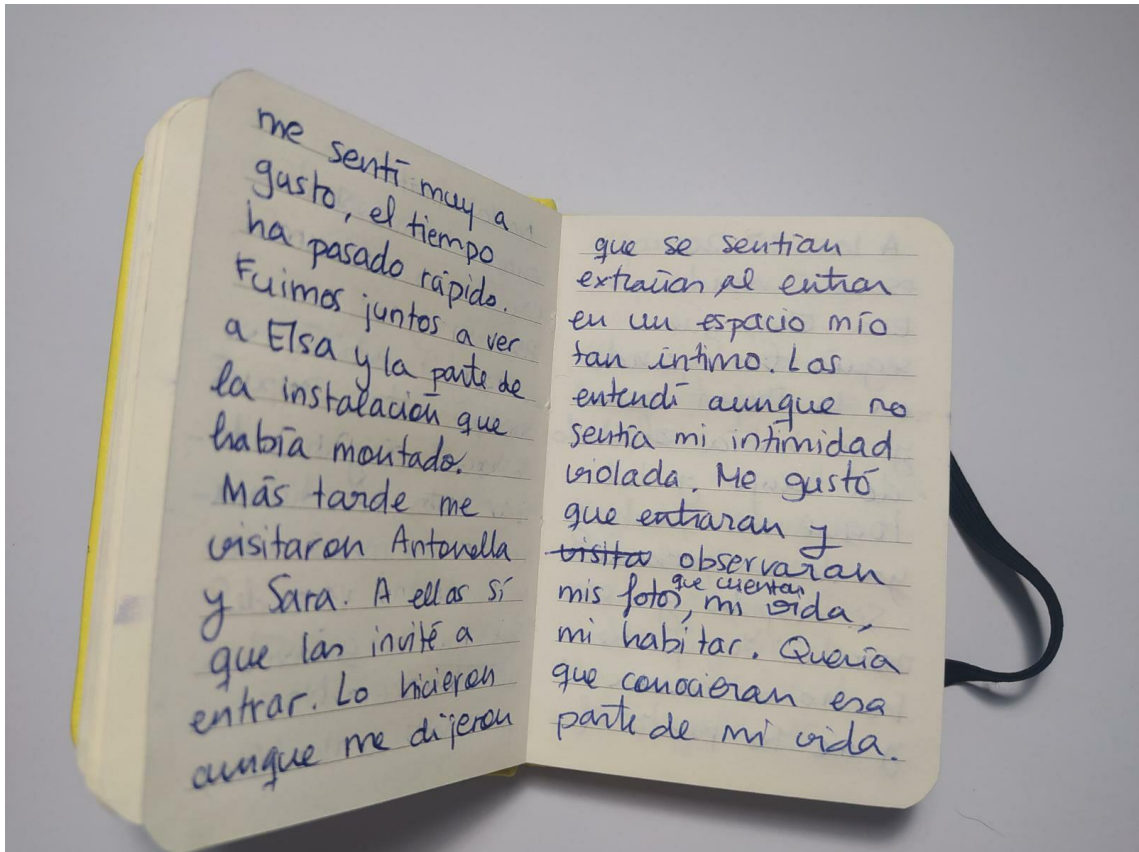 me sentí muy a
gusto, el tiempo
ha pasado rápido.
Fuimos juntos a ver
a Elsa y la parte de
la instalación que
había montado.
Más tarde me
visitaron Antonella
y Sara. A ellas sí
que las invité a
entrar. Lo hicieron
aunque me dijeron
que se sentían
extrañas al entrar
en un espacio mío
tan íntimo. Las
entendí aunque no
sentía mi intimidad
violada. Me gustó
que entraran y
visita observaran
que cuentan
mis fotos, mi vida,
mi habitar. Quería
que conocieran esa
parte de mi vida.